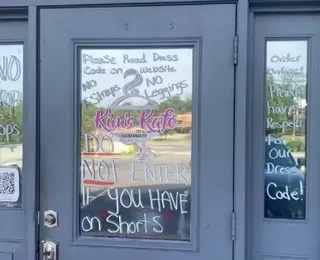 NO
Please Read Dress
Code on website
NO
Straps
NO
Leggings
Kim's Kafe
DO
NOT ENTER
IF YOU HAVE
on "Shorts"
Order
Online!
Please
have
Respect
For
Our
Dress
Code!